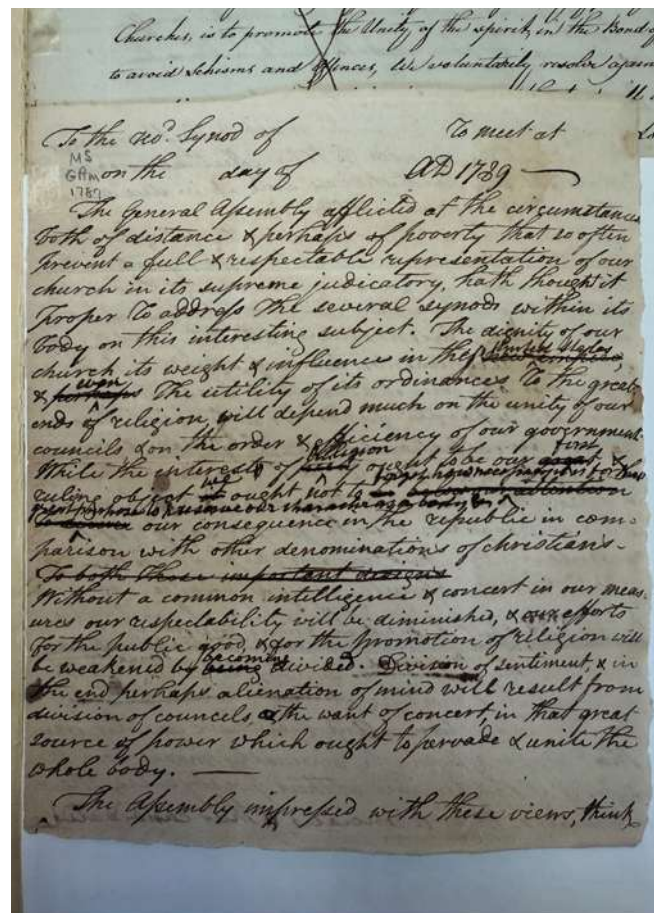 Churches, is to promote the Unity of the spirit, in the Bond of
to avoid schisms and offences, We voluntarily resolve again
To the Rd. Synod of To meet at
MS
GAm
1787
on the day of AD 1789
The General Assembly afflicted at the circumstances
both of distance & perhaps of poverty that so often
prevent a full & respectable representation of our
church in its supreme judicatory, hath thought it
proper to address the several synods within its
body on this interesting subject. The dignity of our
church its weight & influence in the United States,
& perhaps even the utility of its ordinances to the great
ends of religion, will depend much on the unity of our
councils & on the order & efficiency of our government.
While the interests of religion ought to be our first &
ruling object we ought, not to
our consequence in the republic in com-
parison with other denominations of christians.
To both these important designs
Without a common intelligence & concert in our meas-
ures our respectability will be diminished, & our efforts
for the public good, & for the promotion of religion will
be weakened by being becoming divided. Division of sentiment, & in
the end perhaps alienation of mind will result from
division of councils, & the want of concert, in that great
source of power which ought to pervade & unite the
whole body.
The Assembly impressed with these views, think